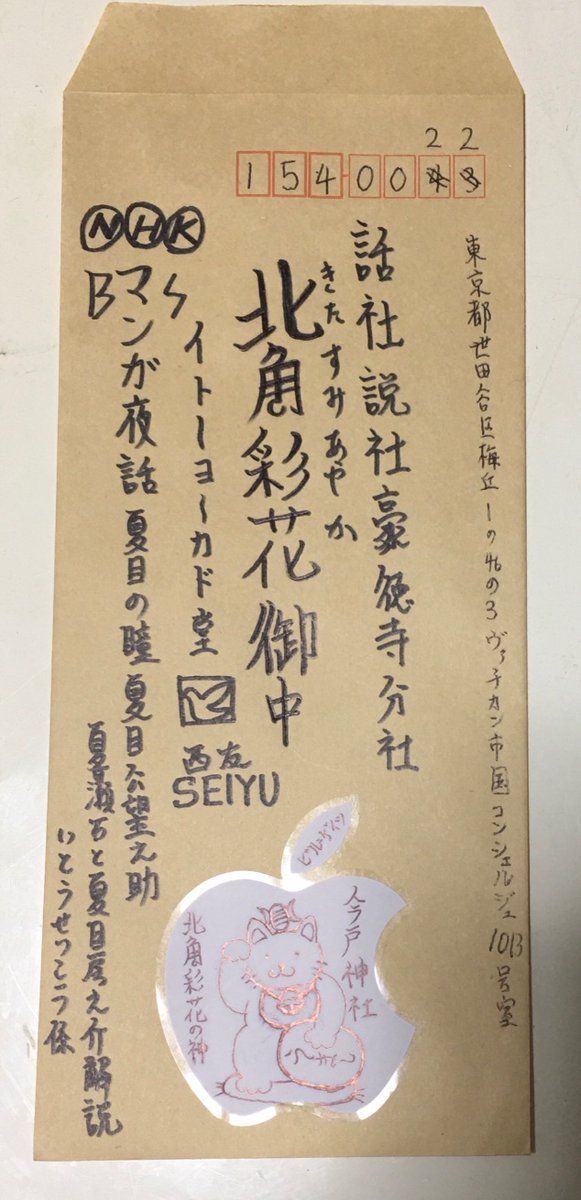 22
1540043
東京都世田谷区梅丘1の46の3ヴァチカン市国コンシェルジュ10B号室
話社説社豪徳寺分社
きたすみあやか
北角彩花御中
イトーヨーカド堂
西友
SEIYU
NHK
BS
マンが夜話 夏目の瞳 夏目
夏目房之介解説
いとうせいこう係
今戸神社
北角彩花の神